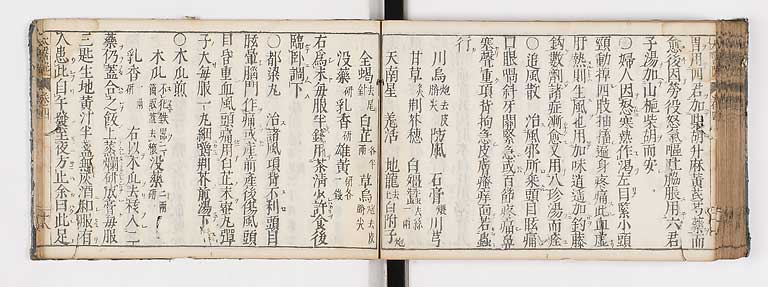 胃用四君加柴胡升麻黃芪芍藥而
愈後因勞役怒氣嘔吐腸脹用六君
子湯加山梔柴胡而安
○婦人因怒寒熱作渴左目緊小頭
頸動掉四肢抽搐遍身疼痛此血虛
肝熱則生風也用加味逍遙加鈎藤
鈎數劑諸症漸愈又用八珍湯而痊
○追風散 治風邪所乘頭目眩痛
口眼喎斜牙關緊急或百節疼痛鼻
塞聲重項背拘急皮膚瘙癢面若蟲
行
川烏炮去皮臍尖 防風 石膏煅 川芎
甘草 荆芥穗 白殭蠶去絲
天南星 羗活 地龍去土 附子炮
全蝎去尾針 白芷各半兩 草烏炮去皮臍尖
没藥 乳香研 雄黃研各
右爲末每服半錢用茶清少許食後
臨臥調下
○都梁丸 治諸風項背不利頭目
眩暈腦門作痛或產前產後傷風頭
目昏重血風頭痛用白芷末蜜丸彈
子大每服一九細嚼荆芥煎湯下
○木瓜煎
木瓜 没藥二兩研
乳香研 右以木瓜去穰入二
藥仍蓋合之飯上蒸爛研成膏每服
三匙生地黃汁半盞無灰酒和服有
人患此自午發至夜方止余曰此足